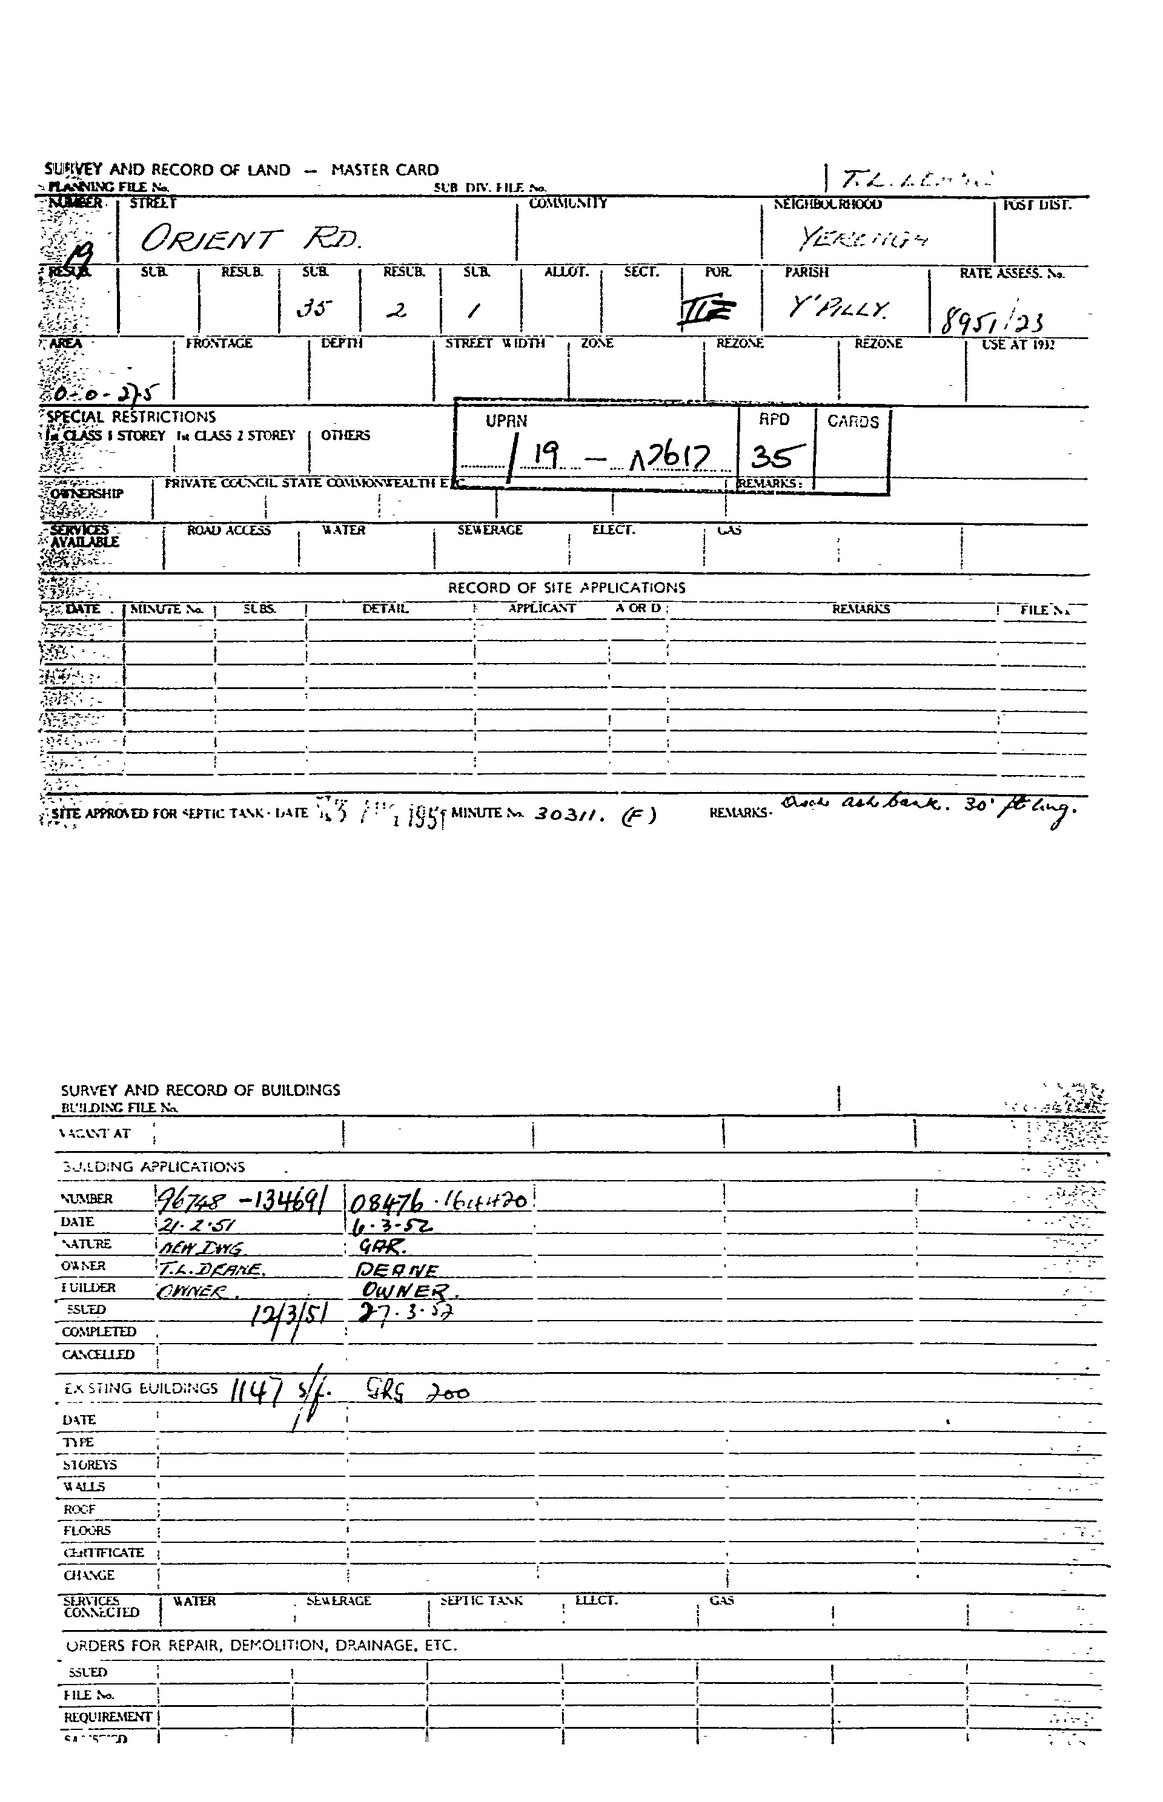 SURVEY AND RECORD OF LAND — MASTER CARD
PLANNING FILE No. SUB DIV. FILE No. T.L.
NUMBER STREET COMMUNITY NEIGHBOURHOOD POST DIST.
19 ORIENT RD.
RESUB. SUB. RESUB. SUB. RESUB. SUB. ALLOT. SECT. POR. PARISH RATE ASSESS. No.
35 2 1 Y'PILLY. 8951/23
AREA FRONTAGE DEPTH STREET WIDTH ZONE REZONE REZONE USE AT 1932
0-0-27.5
SPECIAL RESTRICTIONS UPRN RPD CARDS
1st CLASS 1 STOREY 1st CLASS 2 STOREY OTHERS
/ 19 — 35
OWNERSHIP PRIVATE COUNCIL STATE COMMONWEALTH ETC. REMARKS:
SERVICES AVAILABLE ROAD ACCESS WATER SEWERAGE ELECT. GAS
RECORD OF SITE APPLICATIONS
DATE MINUTE No. SUBS. DETAIL APPLICANT A OR D REMARKS FILE No.
SITE APPROVED FOR SEPTIC TANK - DATE 1951 MINUTE No. 30311. (F) REMARKS- ash bank. 30'
SURVEY AND RECORD OF BUILDINGS
BUILDING FILE No.
VACANT AT
BUILDING APPLICATIONS
NUMBER 96748 -134691 08476 - 164420
DATE 21.2.51 6.3.52
NATURE NEW DWG GAR.
OWNER T.L.DEANE. DEANE
BUILDER OWNER. OWNER.
ISSUED 12/3/51 27.3.52
COMPLETED
CANCELLED
EXISTING BUILDINGS 1147 s/f. GRG 200
DATE
TYPE
STOREYS
WALLS
ROOF
FLOORS
CERTIFICATE
CHANGE
SERVICES CONNECTED WATER SEWERAGE SEPTIC TANK ELECT. GAS
ORDERS FOR REPAIR, DEMOLITION, DRAINAGE, ETC.
ISSUED
FILE No.
REQUIREMENT